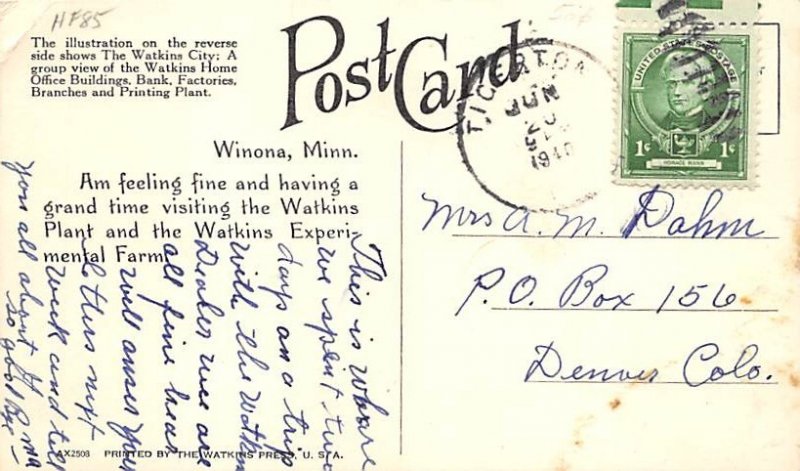 HF85
The illustration on the reverse
side shows The Watkins City: A
group view of the Watkins Home
Office Buildings, Bank, Factories,
Branches and Printing Plant.
Post Card
Winona, Minn.
Am feeling fine and having a
grand time visiting the Watkins
Plant and the Watkins Experi-
mental Farm.
This is where
we spent two
days on a trip
with the Watkins
Dealer wee are
all fine hear
will anser your
letters next
week and tell
you all about it
so good Bye
AX2508 PRINTED BY THE WATKINS PRESS, U. S. A.
TIGERTON
JUN
20
1940
UNITED STATES POSTAGE
1¢ 1¢
HORACE MANN
Mrs A. M. Dahm
P.O. Box 156
Denver Colo.